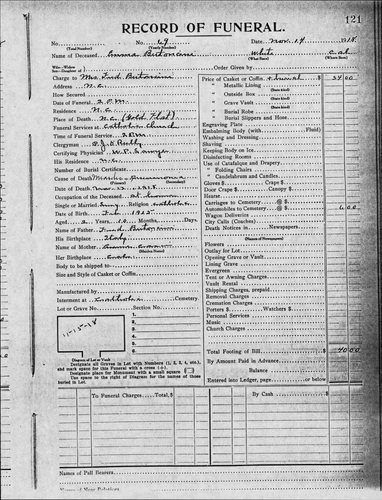 121
RECORD OF FUNERAL.
No. No. 69 Date Nov. 14 1918
(Total Number) (Yearly Number)
Name of Deceased Emma White Cal
(What Race) (Where Born)
Order Given by
Charge to Mr. Fred
Address N.C.
How Secured
Date of Funeral 2 P.M.
Residence N.C.
Place of Death N.C. (Gold Flat)
Funeral Services at Catholic Church
Time of Funeral Service 2 P.M.
Clergyman
Certifying Physician W.P. Sawyer
His Residence N.C.
Number of Burial Certificate
Cause of Death Pneumonia
(Primary) (Secondary)
Date of Death Nov. 1918
Occupation of the Deceased at h
Single or Married Religion Catholic
Date of Birth Feb 1915
Aged Years Months Days
Name of Father Fred
His Birthplace Italy
Name of Mother
(Maiden Name)
Her Birthplace
Body to be shipped to
Size and Style of Casket or Coffin
Interment at Catholic Cemetery
Lot or Grave No. Section No.
11-15-18
1.
2.
3.
4.
5.
6.
Diagram of Lot or Vault
Designate all Graves in Lot with Numbers (1, 2, 3, 4, etc.), and mark space for this Funeral with a cross (+).
Designate place for Monument with a small square
Use space to the right of Diagram for the names of those buried in Lot.
Price of Casket or Coffin & Funeral $ 34 00
" Metallic Lining
" Outside Box
" Grave Vault
" Burial Robe
" Burial Slippers and Hose
Engraving Plate
Embalming Body (with Fluid)
Washing and Dressing
Shaving
Keeping Body on Ice
Disinfecting Rooms
Use of Catafalque and Drapery
" Folding Chairs
" Candelabrum and Candles
Gloves $ Crape $
Door Crape $ Canopy $
Hearse
Carriages to Cemetery @ $
Automobiles to Cemetery @ $ 6 00
Wagon Deliveries
City Calls (Coaches)
Death Notices in Newspapers
(Names of Newspapers)
Flowers
Outlay for Lot
Opening Grave or Vault
Lining Grave
Evergreen
Tent or Awning Charges
Vault Rental
Shipping Charges, prepaid
Removal Charges
Cremation Charges
Porters $ Watchers $
Personal Services
Music
Church Charges
Total Footing of Bill $ 40 00
By Amount Paid in Advance
Balance
Entered into Ledger, page or below
To Funeral Charges Total, $
By Cash $
Names of Pall Bearers